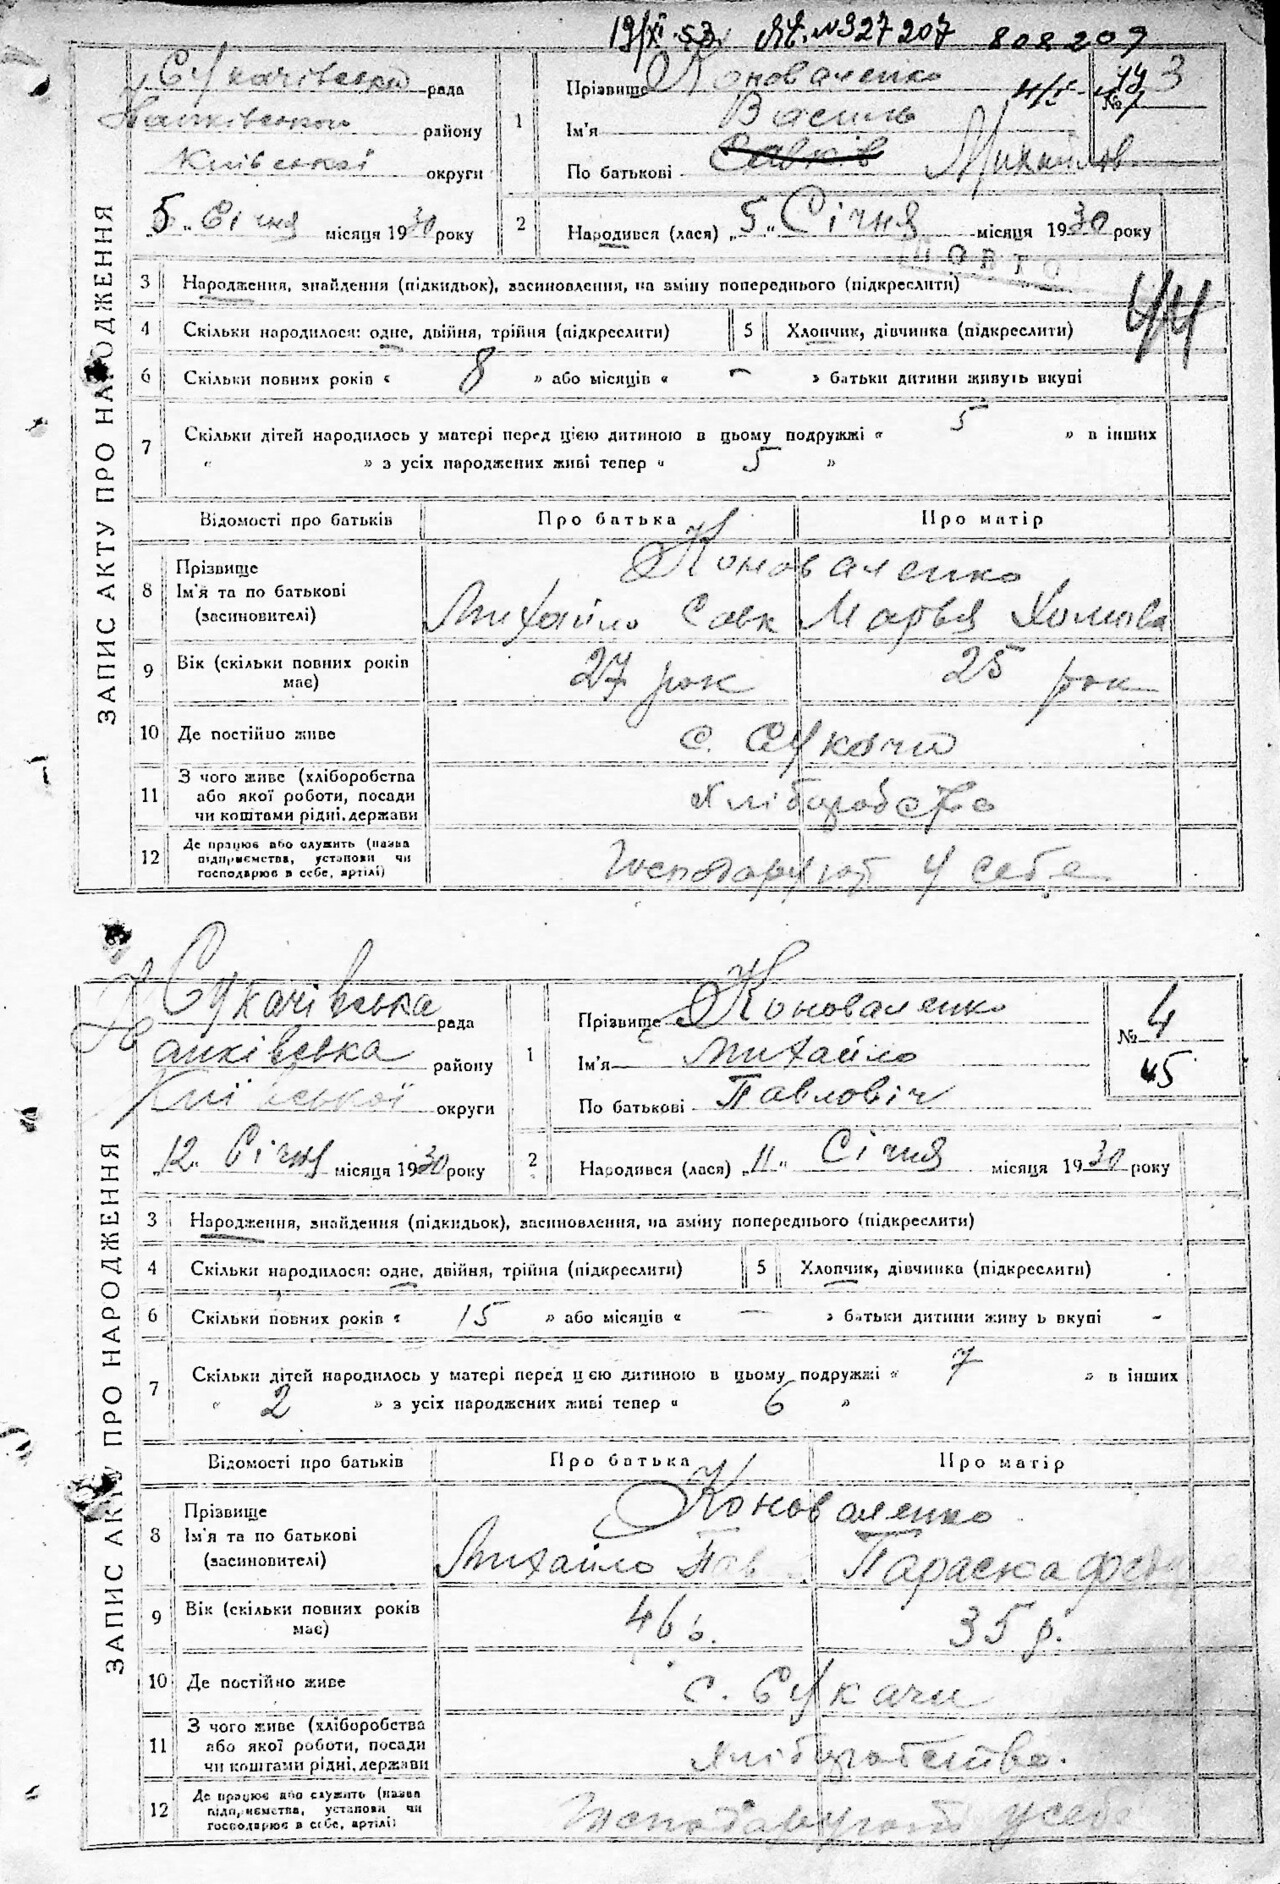 19/XI 53. № 327207 808209
Сукачівська рада
району
Київської округи
„5„ Січня місяця 1930 року
1
Прізвище Коноваленко
Ім'я Василь
По батькові Савків Михайлов
№ 3
44
2
Народився (лася) „5„ Січня місяця 1930 року
ПОВТО
ЗАПИС АКТУ ПРО НАРОДЖЕННЯ
3 Народження, знайдення (підкидьок), засиновлення, на зміну попереднього (підкреслити)
44
4 Скільки народилося: одне, двійня, трійня (підкреслити) 5 Хлопчик, дівчинка (підкреслити)
6 Скільки повних років « 8 » або місяців « – » батьки дитини живуть вкупі
7 Скільки дітей народилось у матері перед цією дитиною в цьому подружжі « 5 » в інших
« » з усіх народжених живі тепер « 5 »
Відомості про батьків Про батька Про матір
8 Прізвище
Ім'я та по батькові
(засиновителі)
Коноваленко
Михайло Савк Марья Хомова
9 Вік (скільки повних років має) 27 рок 25 рок
10 Де постійно живе с. Сукачи
11 З чого живе (хліборобства
або якої роботи, посади
чи коштами рідні, держави
Хліборобство
12 Де працює або служить (назва
підприємства, установи чи
господарює в себе, артілі)
Господарують у себе
Сукачівська рада
району
Київської округи
„12„ Січня місяця 1930 року
1
Прізвище Коноваленко
Ім'я Михайло
По батькові Павловіч
№ 4
45
2
Народився (лася) „11„ Січня місяця 1930 року
ЗАПИС АКТУ ПРО НАРОДЖЕННЯ
3 Народження, знайдення (підкидьок), засиновлення, на зміну попереднього (підкреслити)
4 Скільки народилося: одне, двійня, трійня (підкреслити) 5 Хлопчик, дівчинка (підкреслити)
6 Скільки повних років « 15 » або місяців « – » батьки дитини живу ь вкупі
7 Скільки дітей народилось у матері перед цією дитиною в цьому подружжі « 7 » в інших
« 2 » з усіх народжених живі тепер « 6 »
Відомості про батьків Про батька Про матір
8 Прізвище
Ім'я та по батькові
(засиновителі)
Коноваленко
Михайло Пав Параска
9 Вік (скільки повних років має) 46 35 р.
10 Де постійно живе с. Сукачи
11 З чого живе (хліборобства
або якої роботи, посади
чи коштами рідні, держави
Хліборобство.
12 Де працює або служить (назва
підприємства, установи чи
господарює в себе, артілі)
Господарують у себе